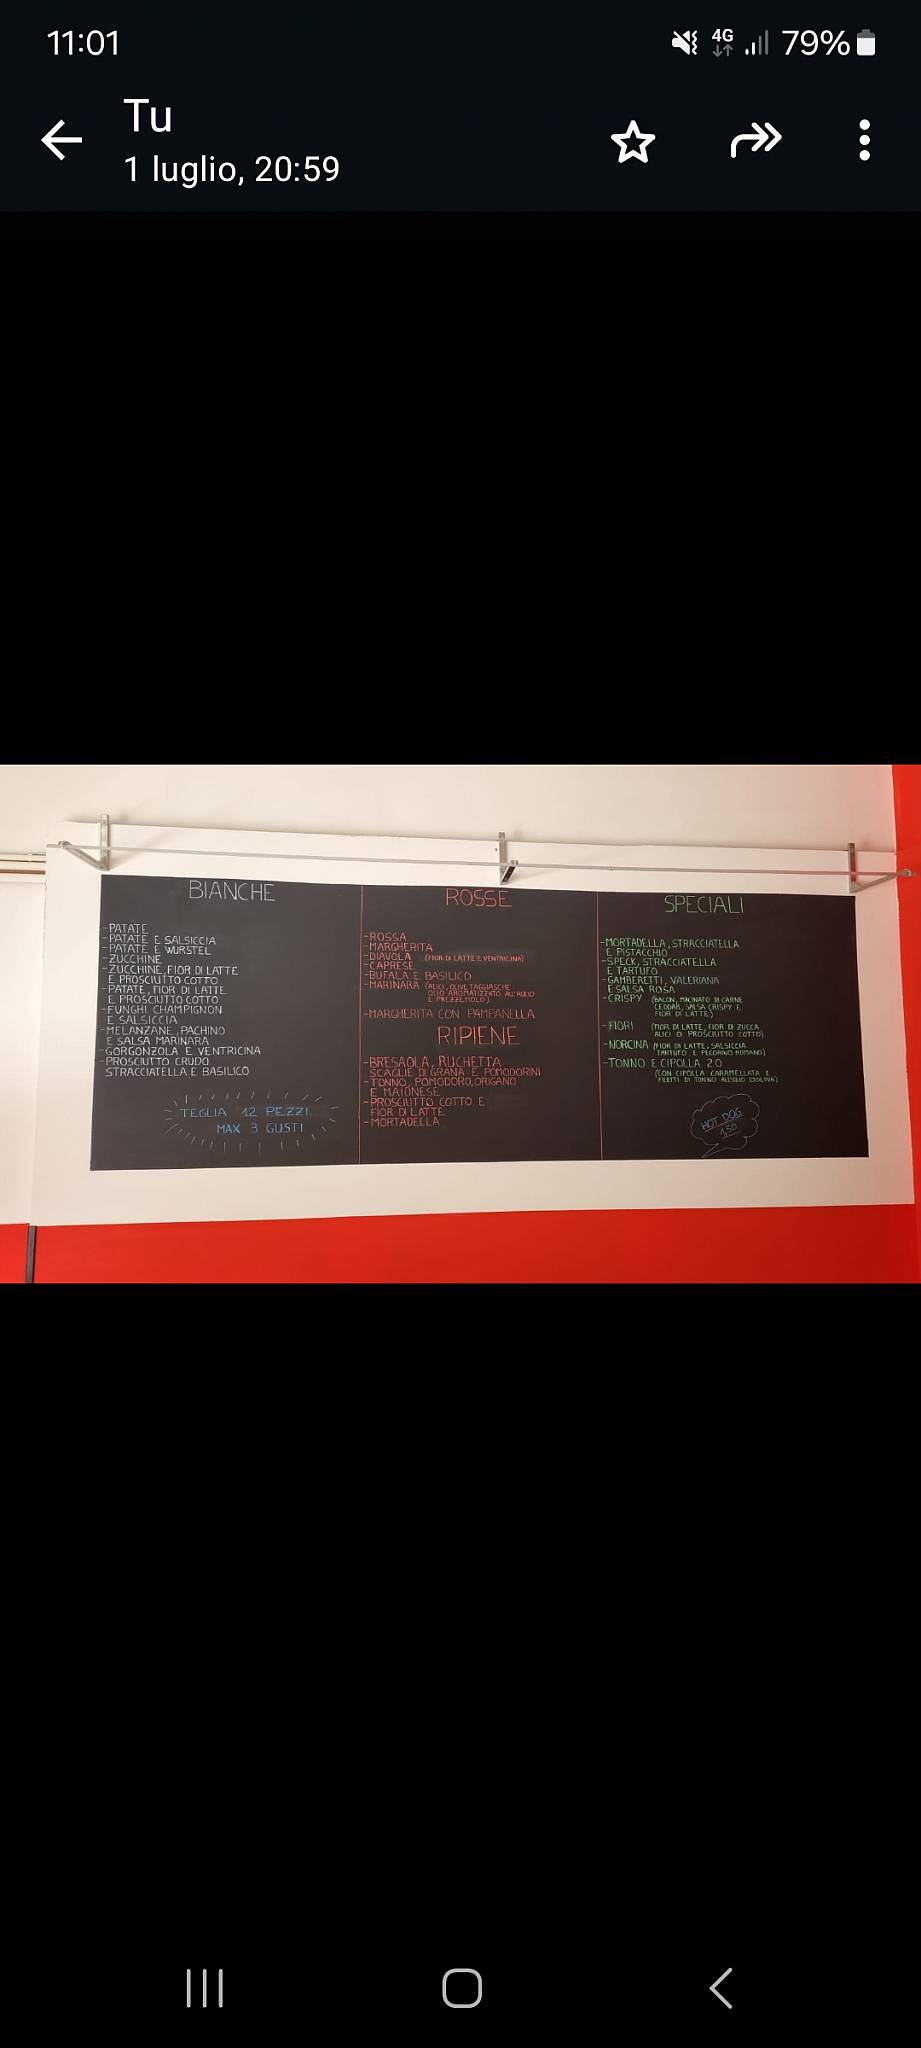 11:01
4G
79%
Tu
1 luglio, 20:59
BIANCHE
-PATATE
-PATATE E SALSICCIA
-PATATE E WURSTEL
-ZUCCHINE
-ZUCCHINE, FIOR DI LATTE
E PROSCIUTTO COTTO
-PATATE, FIOR DI LATTE
E PROSCIUTTO COTTO
-FUNGHI CHAMPIGNON
E SALSICCIA
-MELANZANE, PACHINO
E SALSA MARINARA
-GORGONZOLA E VENTRICINA
-PROSCIUTTO CRUDO
STRACCIATELLA E BASILICO
TEGLIA 12 PEZZI
MAX 3 GUSTI
ROSSE
-ROSSA
-MARGHERITA
-DIAVOLA (FIOR DI LATTE E VENTRICINA)
-CAPRESE
-BUFALA E BASILICO
-MARINARA (ALICI, OLIVE TAGGIASCHE
OLIO AROMATIZZATO ALL'AGLIO
E PREZZEMOLO)
-MARGHERITA CON PAMPANELLA
RIPIENE
-BRESAOLA, RUCHETTA
SCAGLIE DI GRANA E POMODORINI
-TONNO, POMODORO, ORIGANO
E MAIONESE
-PROSCIUTTO COTTO E
FIOR DI LATTE
-MORTADELLA
SPECIALI
-MORTADELLA, STRACCIATELLA
E PISTACCHIO
-SPECK, STRACCIATELLA
E TARTUFO
-GAMBERETTI, VALERIANA
E SALSA ROSA
-CRISPY (BACON, MACINATO DI CARNE
CEDDAR, SALSA CRISPY E
FIOR DI LATTE)
-FIORI (FIOR DI LATTE, FIOR DI ZUCCA
ALICI O PROSCIUTTO COTTO)
-NORCINA (FIOR DI LATTE, SALSICCIA
TARTUFO E PECORINO ROMANO)
-TONNO E CIPOLLA 2.0
(CON CIPOLLA CARAMELLATA E
FILETTI DI TONNO ALL'OLIO D'OLIVA)
HOT DOG
1,50